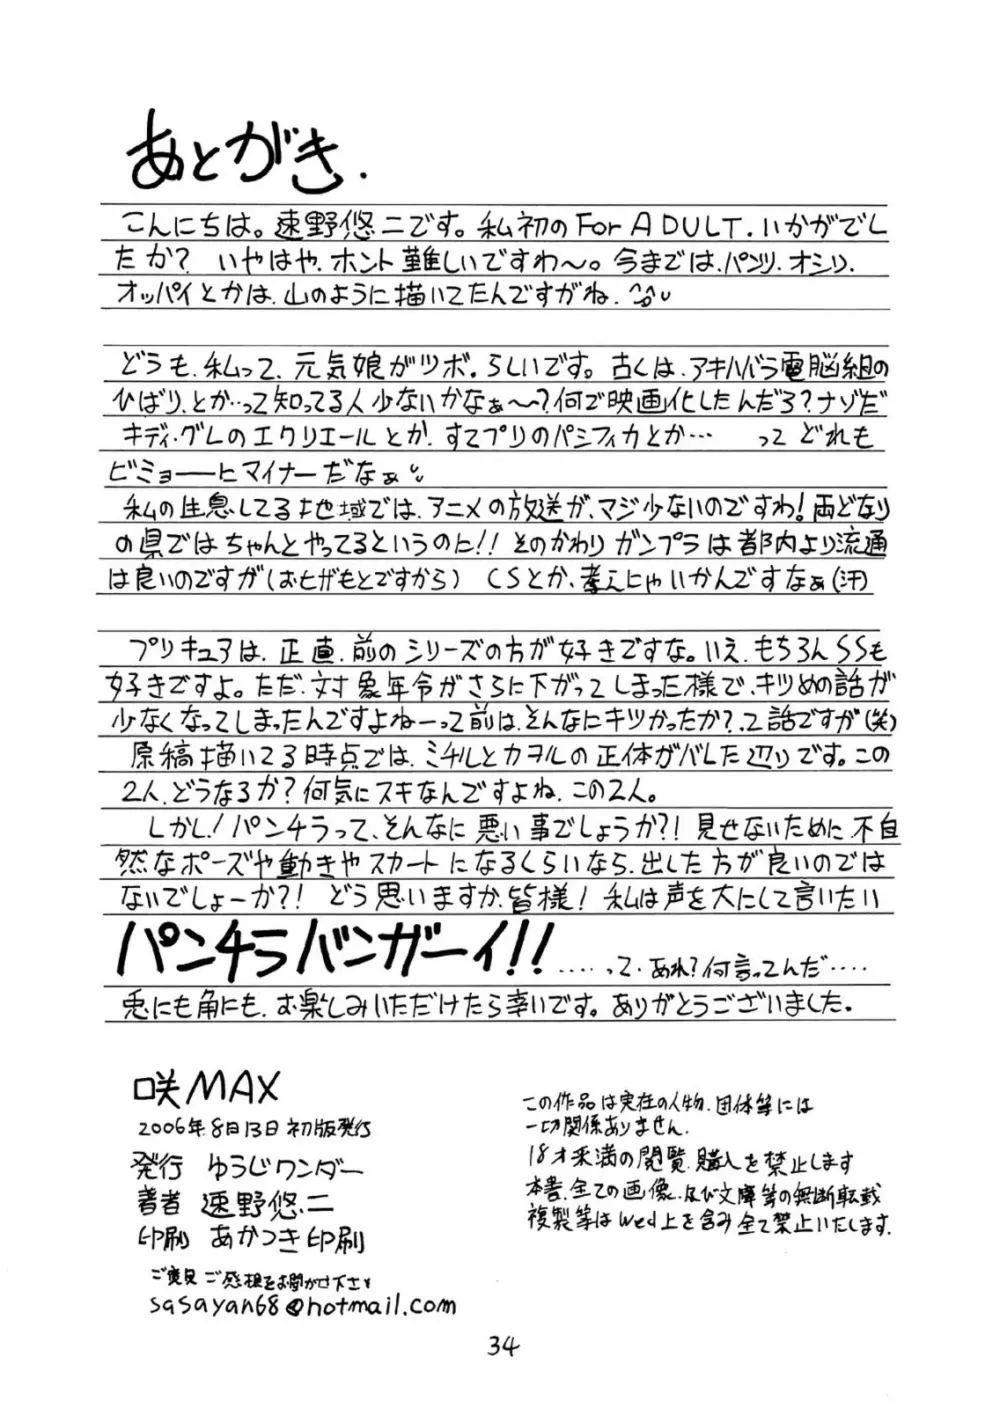 あとがき.
こんにちは。速野悠二です。私初のFor ADULT.いかがでし
たか? いやはや、ホント難しいですわ〜。今まではパンツ、オシリ、
オッパイとかは、山のように描いてたんですがね、^^;
どうも、私って、元気娘がツボ。らしいです。古くは、アキハバラ電脳組の
ひばり、とか…って知ってる人少ないかなぁ〜〜?何で映画化したんだろ?ナゾだ
キディ・グレのエクリエールとか、すてプリのパシフィカとか… って どれも
ビミョーーにマイナーだなぁ
私の生息してる地域では、アニメの放送が、マジ少ないのですわ!両どなり
の県ではちゃんとやってるというのに!! そのかわりガンプラは都内より流通
は良いのですが(おヒザもとですから) CSとか、考えにゃいかんですなぁ(汗)
プリキュアは、正直、前のシリーズの方が好きですな。いえ、もちろんSSも
好きですよ。ただ、対象年令がさらに下がってしまった様で、キツめの話が
少なくなってしまったんですよねーって前は、そんなにキツかったか?、て話ですが(笑)
原稿描いてる時点では、ミチルとカヲルの正体がバレた辺りです。この
2人、どうなるか?何気にスキなんですよね、この2人。
しかし!パンチラって、そんなに悪い事でしょうか?!見せないために、不自
然なポーズや動きやスカートになるくらいなら、出した方が良いのでは
ないでしょーか?! どう思いますか、皆様! 私は声を大にして言いたい
パンチラバンガーイ!! ....って、あれ?何言ってんだ....
兎にも角にも、お楽しみいただけたら幸いです。ありがとうございました。
咲MAX
2006年.8月13日 初版発行
発行 ゆうじワンダー
著者 速野悠二
印刷 あかつき印刷
ご意見ご感想をお聞かせ下さい
sasayan68@hotmail.com
この作品は実在の人物、団体等には
一切関係ありません.
18才未満の閲覧、購入を禁止します
本書、全ての画像、及び文庫等の無断転載
複製等はWed上を含み全て禁止いたします.
34